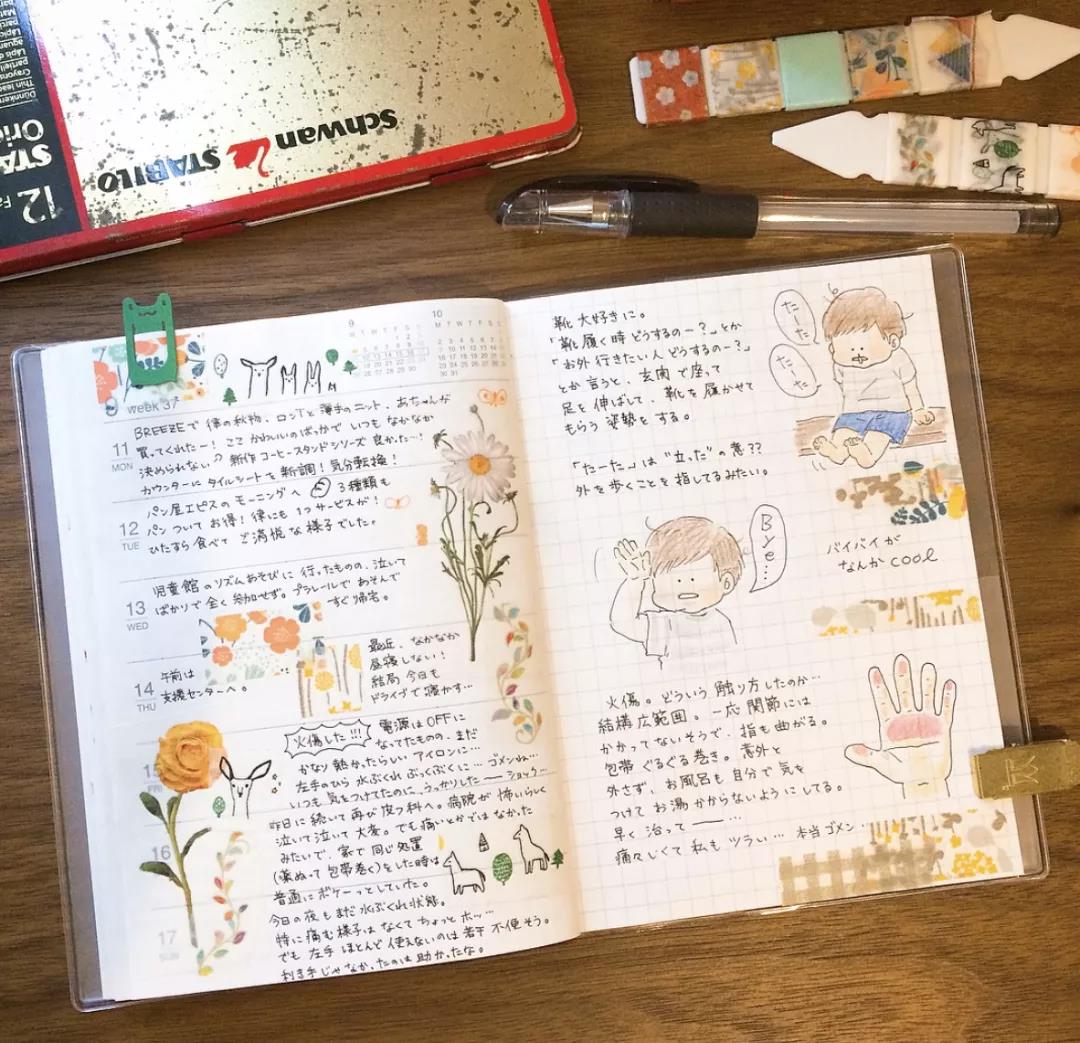 Schwan STABILO
STA
Ori
12 Fa
9
10
week 37
11
MON
BREEZEで 律の秋物、ロンTと 薄手のニット、あちゃんが
買ってくれたー! ここ かわいいのばっかで いつも なかなか
決められない 新作コーヒースタンドシリーズ 良かった…!
カウンターに タイルシートを 新調! 気分転換!
12
TUE
パン屋エピスの モーニングへ 3種類も
パン ついて お得! 律にも 1つサービスが!
ひたすら 食べて ご満悦な 様子でした。
13
WED
児童館 のリズムあそびに 行ったものの、泣いて
ばかりで 全く 参加せず。プラレールで あそんで
すぐ帰宅。
14
THU
午前は
支援センターへ。
最近、なかなか
昼寝しない!
結局 今日も
ドライブで 寝かす…
15
FRI
火傷した!!!
電源は OFFに
なってたものの、まだ
かなり 熱かったらしい アイロンに…
左手のひら 水ぶくれ ぷっくぷくに… ゴメンね…
いつも 気をつけてたのに、うっかりした ―― ショック…
16
昨日に 続いて 再び 皮フ科へ。病院が 怖いらしく
泣いて泣いて 大変。でも痛いとかではなかった
みたいで、家で 同じ処置
(薬ぬって 包帯巻く)をした時は
普通に ボケーっとしていた。
17
SUN
今日の夜も まだ 水ぶくれ状態。
特に 痛む様子は なくて ちょっと ホッ…
でも 左手 ほとんど 使えないのは 若干 不便そう。
利き手じゃなかったのは 助かったな。
靴 大好きに。
「靴 履く時 どうするのー?」とか
「お外 行きたい人 どうするのー?」
とか 言うと、玄関 で 座って
足を 伸ばして、靴を 履かせて
もらう 姿勢を する。
たーた
たーた
「たーた」は "立った" の意??
外を 歩くことを 指してるみたい。
Bye…
バイバイが
なんか cool
火傷。どういう 触り方したのか…
結構 広範囲。一応 関節には
かかってないそうで、指も 曲がる。
包帯 ぐるぐる巻き。意外と
外さず、お風呂も 自分で 気を
つけて お湯 かからないように してる。
早く 治って ――…
痛々しくて 私も ツラい… 本当ゴメン…